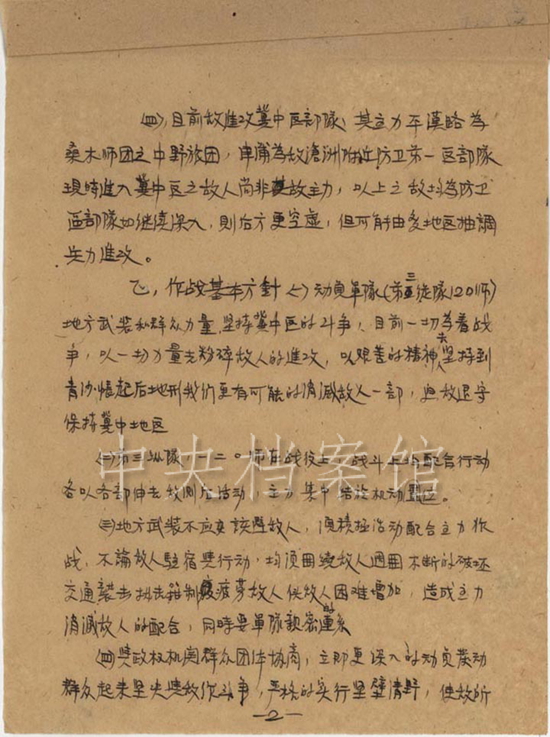 (四)、目前敌进攻冀中区部队、其主力平汉路为
桑木师团之中野旅团，津浦为敌沧洲附近防卫第一区部队
现时进入冀中区之敌人尚非其敌主力，以上之敌均为防卫
区部队如继续深入，则后方更空虚，但可能由各地区抽调
兵力进攻。
乙，作战基本方针(一)动员军队(第三纵队120师)
地方武装和群众力量坚持冀中区的斗争，目前一切为着战
争，以一切力量去粉碎敌人的进攻，以艰苦的精神去坚持到
青沙幛起后地形我们更有可能的消灭敌人一部，迫敌退守
保持冀中地区
(二)第三纵队一二〇师在战役上、战斗上的配合行动
各以各部伸去敌侧后活动，主力集中给于机动
(三)地方武装不应妄谈避敌人，须积极活动配合主力作
战，不论敌人驻宿与行动，均须围绕敌人周围不断的破坏
交通袭击疲劳敌人使敌人困难增加，造成主力
消灭敌人的配合，同时要军队亲密的联系
(四)党政权机关群众团体协商，立即更深入的动员发动
群众起来坚决与敌作斗争，严格的实行坚壁清野，使敌所
—2—
中央档案馆